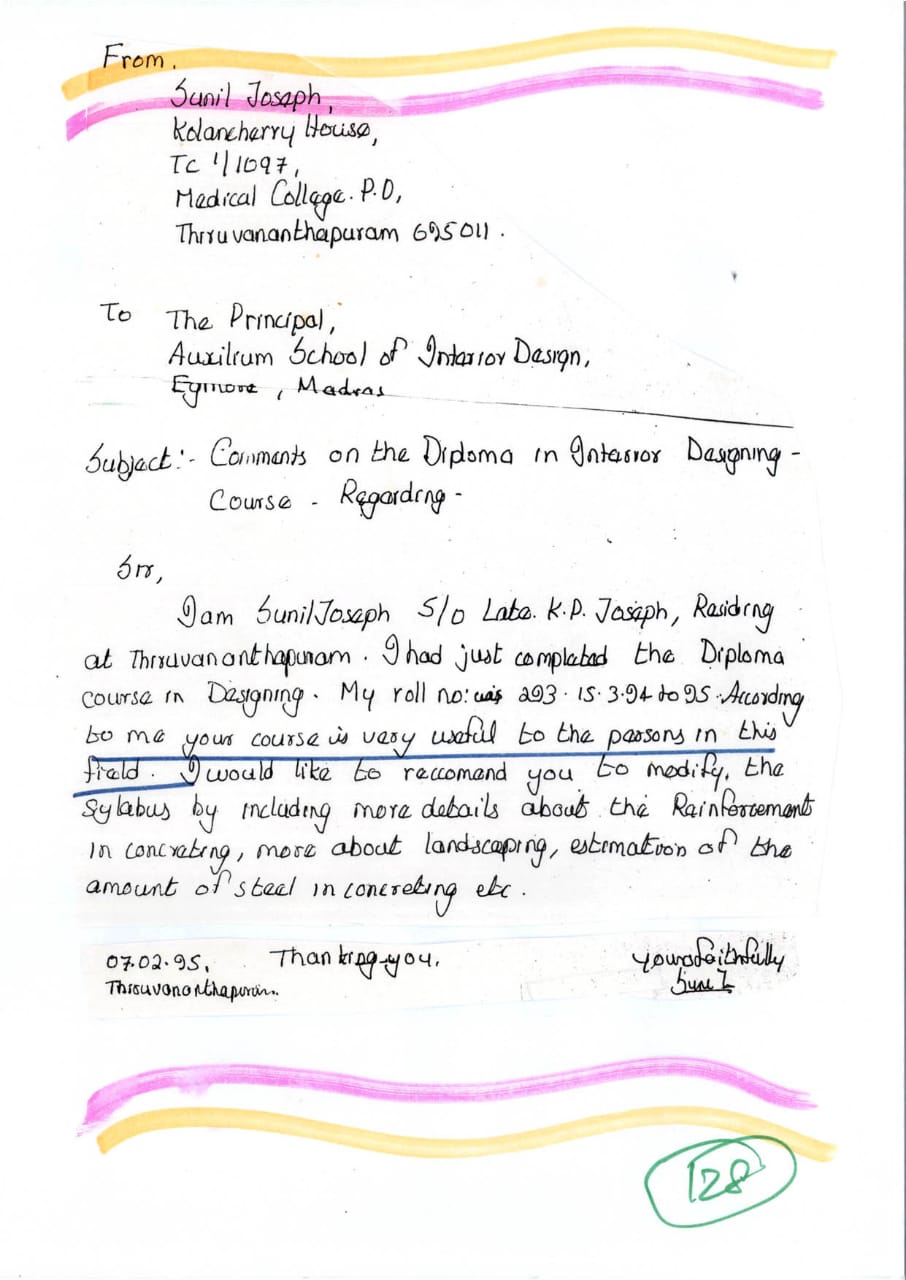 From.
Sunil Joseph,
Kolancherry House,
TC 1/1097,
Medical College. P.O,
Thiruvananthapuram 695011.
To The Principal,
Auxilium School of Interior Design,
Egmore, Madras
Subject:- Comments on the Diploma in Interior Designing -
Course - Regarding -
Sir,
I am Sunil Joseph S/o Late. K.P. Joseph, Residing
at Thiruvananthapuram. I had just completed the Diploma
course in Designing. My roll no: was 293. 15.3.94 to 95. According
to me your course is very useful to the persons in this
field. I would like to reccomend you to modify, the
Sylabus by including more details about the Reinforcement
in concreting, more about landscaping, estimation of the
amount of steel in concreting etc.
07.02.95, Thanking you, yours faithfully
Thiruvananthapuram. Sunil
128